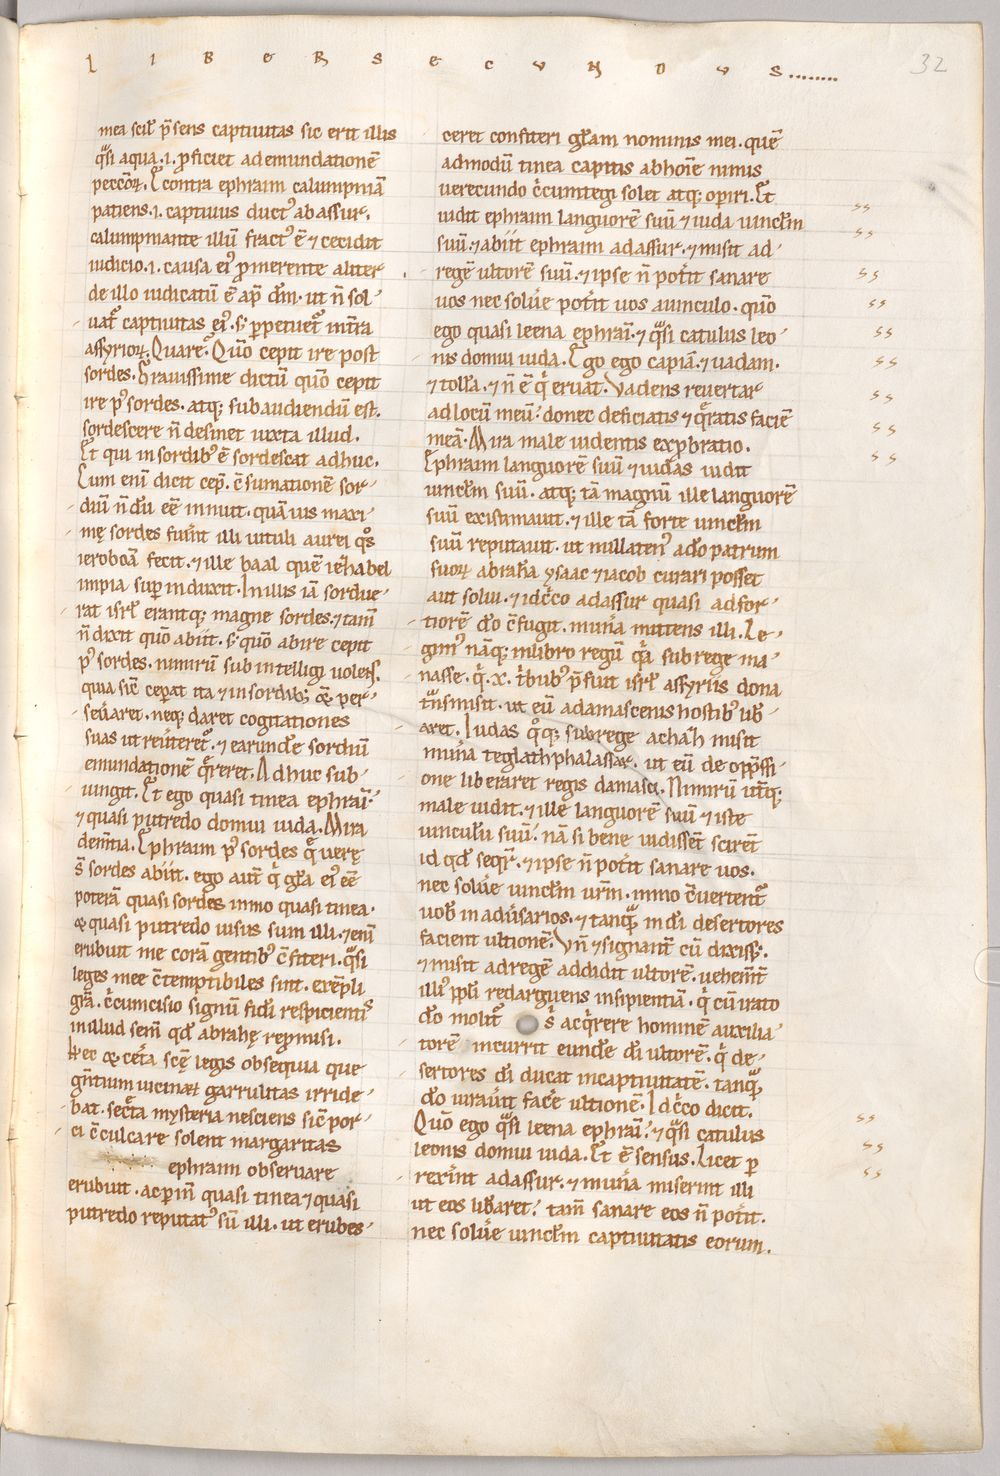 LIBER SECUNDUS........
32
mea scil' p̄sens captiuitas sic erit illis
q̇si aqua .i. ꝓficiet ad emundationē
peccōꝝ. Econtra ephraim calumpniā
patiens .i. captiuus duct᷒ ab assur.
calumpniante illū fract᷒ ē ⁊ cecidit
iudicio .i. causa ei᷒ ꝓmerente aliter
de illo iudicatū ē ap̄ dm̄. ut ñ sol-
uat᷑ captiuitas ei᷒. s; ꝑpetuet᷑ int̄ra
assyrioꝝ. Quare? Qūo cepit ire post
sordes. Grauissime dictū quō cepit
ire p᷒ sordes. atq; subaudiendū est.
sordescere ñ desinet iuxta illud.
Et qui in sordib᷒ ē sordescat adhuc.
Cum enī dicit cep̄. c̄sumationē sor-
diū ñ dū eē innuit. quāuis maxi-
mę sordes fuer̄t illi uituli aurei q᷒s
ieroboā fecit. ⁊ ille baal quē iezabel
impia suꝑinduxit. In illis iā sordue-
rat isrl' erantq; magne sordes. ⁊ tam̄
ñ dixit quō abiit. s; quō abire cepit
p᷒ sordes. nimirū subintelligi uolens.
quia sic̄ ceperat ita ⁊ in sordib; ⁊ ꝑ-
seūaret. neq; daret cogitationes
suas ut reūteret᷑. ⁊ earundē sordiū
emundationē q̄reret. Adhuc sub-
iungit. Et ego quasi tinea ephraī.
⁊ quasi putredo domui iuda. Mira
dem̄tia. Ephraim p᷒ sordes q̄ uerę
s̄ sordes abiit. ego aut̄ q̇ gr̄a ei᷒ eē
poterā quasi sordes immo quasi tinea.
⁊ quasi putredo uisus sum illi. ⁊ enī
erubuit me corā gentib᷒ c̄fiteri. q̇si
leges mee c̄temptibiles sint. exēpli
gr̄a. c̄cumcisio signū fidei respicientis
in illud sem̄ qd' abrahę repmisi.
Hec ⁊ cēta scę legis obsequia que
gn̄tium uicinaꝝ garrulitas irride-
bat. secr̄ta mysteria nesciens sic̄ por-
ci c̄culcare solent margaritas
ephraim obseruare
erubuit. ac ꝓin̄ quasi tinea ⁊ quasi
putredo reputat᷒ sū illi. ut erubes-
ceret confiteri gl'am nominis mei. quē
admodū tinea capitis ab hoīe nimis
uerecundo c̄cumtegi solet atq; operiri. Et
uidit ephraim languorē suū ⁊ iuda uincl'm
suū. ⁊ abiit ephraim ad assur. ⁊ misit ad
regē ultorē suū. ⁊ ipse ñ pot̄it sanare
uos nec solūe pot̄it uos a uinculo. quō
ego quasi leena ephraī. ⁊ q̇si catulus leo-
nis domui iuda. Ego ego capiā. ⁊ uadam.
⁊ tollā. ⁊ ñ ē q̇ eruat. Vadens reuertar
ad locū meū. donec deficiatis ⁊ q̄ratis faciē
meā. Mira male uidentis exꝓbratio.
Ephraim languorē suū ⁊ iudas uidit
uincl'm suū. atq; tā magnū ille languorē
suū existimauit. ⁊ ille tā forte uincl'm
suū reputauit. ut nullaten᷒ a dō patrum
suoꝝ abrahā ysaac ⁊ iacob curari posset
aut solui. ⁊ idc̄co ad assur quasi ad for-
tiorē dō c̄fugit. munā mittens illi. Le-
gim᷒ nāq; in libro regū q̄a sub rege ma-
nasse. q̇ .x. t̄bub᷒ p̄fuit isrl' assyriis dona
t̄nsmisit. ut eū a damascenis hostib᷒ lib̄-
aret. Iudas q᷒q; sub rege achaz misit
munā teglathphalassar. ut eū de opp̄ssi-
one liberaret regis damasci. Nimirū ut̄q;
male uidit. ⁊ ille languorē suū ⁊ iste
uinculū suū. nā si bene uidissēt scirēt
id qd' seq̄r. ⁊ ipse ñ pot̄it sanare uos.
nec solūe uincl'm ur̄m. immo c̄uertent᷑
uob̄ in adūsarios. ⁊ tanq̄ in dī desertores
facient ultionē. Vn̄ ⁊ signant̄ cū dixiss;
⁊ misit ad regē addidit ultorē. uehem̄t̄
illi᷒ pp̄li redarguens insipientiā. q̇ cū irato
dō molit᷑ s; acq̇rere hominē auxilia-
torē incurrit eundē dī ultorē. q̇ de-
sertores dī ducat in captiuitatē. tanq̄
dō iurauīt facē ultionē. Idc̄co dicit.
Quō ego q̇si leena ephraī. ⁊ q̇si catulus
leonis domui iuda. Et ē sensus. Licet ꝑ
rexīnt ad assur. ⁊ munā miserint illi
ut eos lib̄aret. tam̄ sanare eos ñ pot̄it.
nec solūe uincl'm captiuitatis eorum.